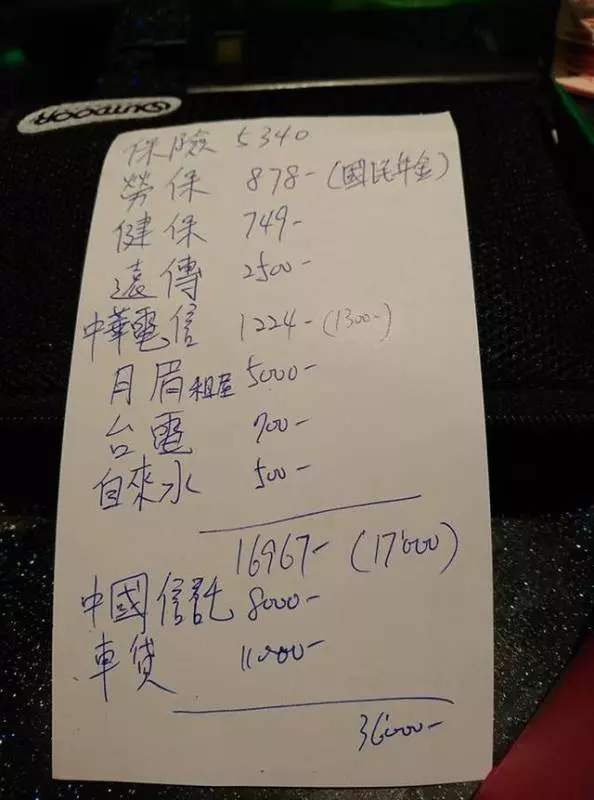 OUTDOOR
保險 5340
勞保 878-(國民年金)
健保 749-
遠傳 2500-
中華電信 1224-(1300-)
月眉租屋 5000-
台電 700-
自來水 500-
16967- (17000)
中國信託 8000-
車貸 11000-
36000-